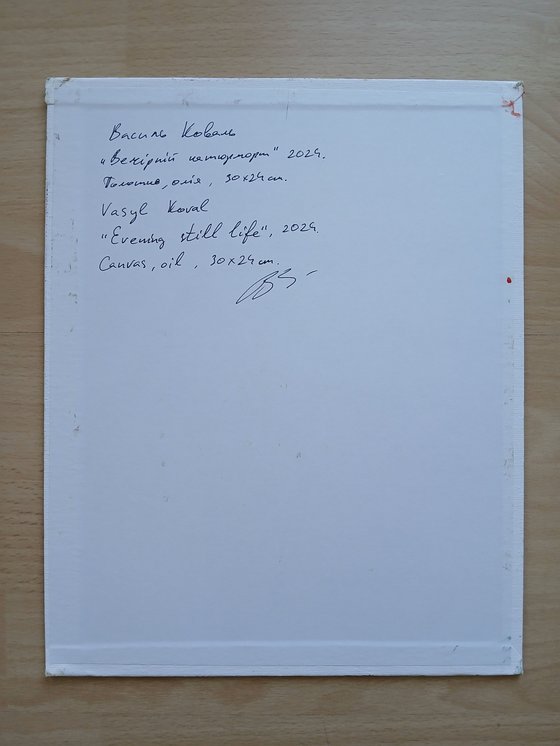 Василь Коваль
"Вечірній натюрморт" 2024.
Полотно, олія, 30х24 см.
Vasyl Koval
"Evening still life", 2024.
Canvas, oil, 30x24 cm.